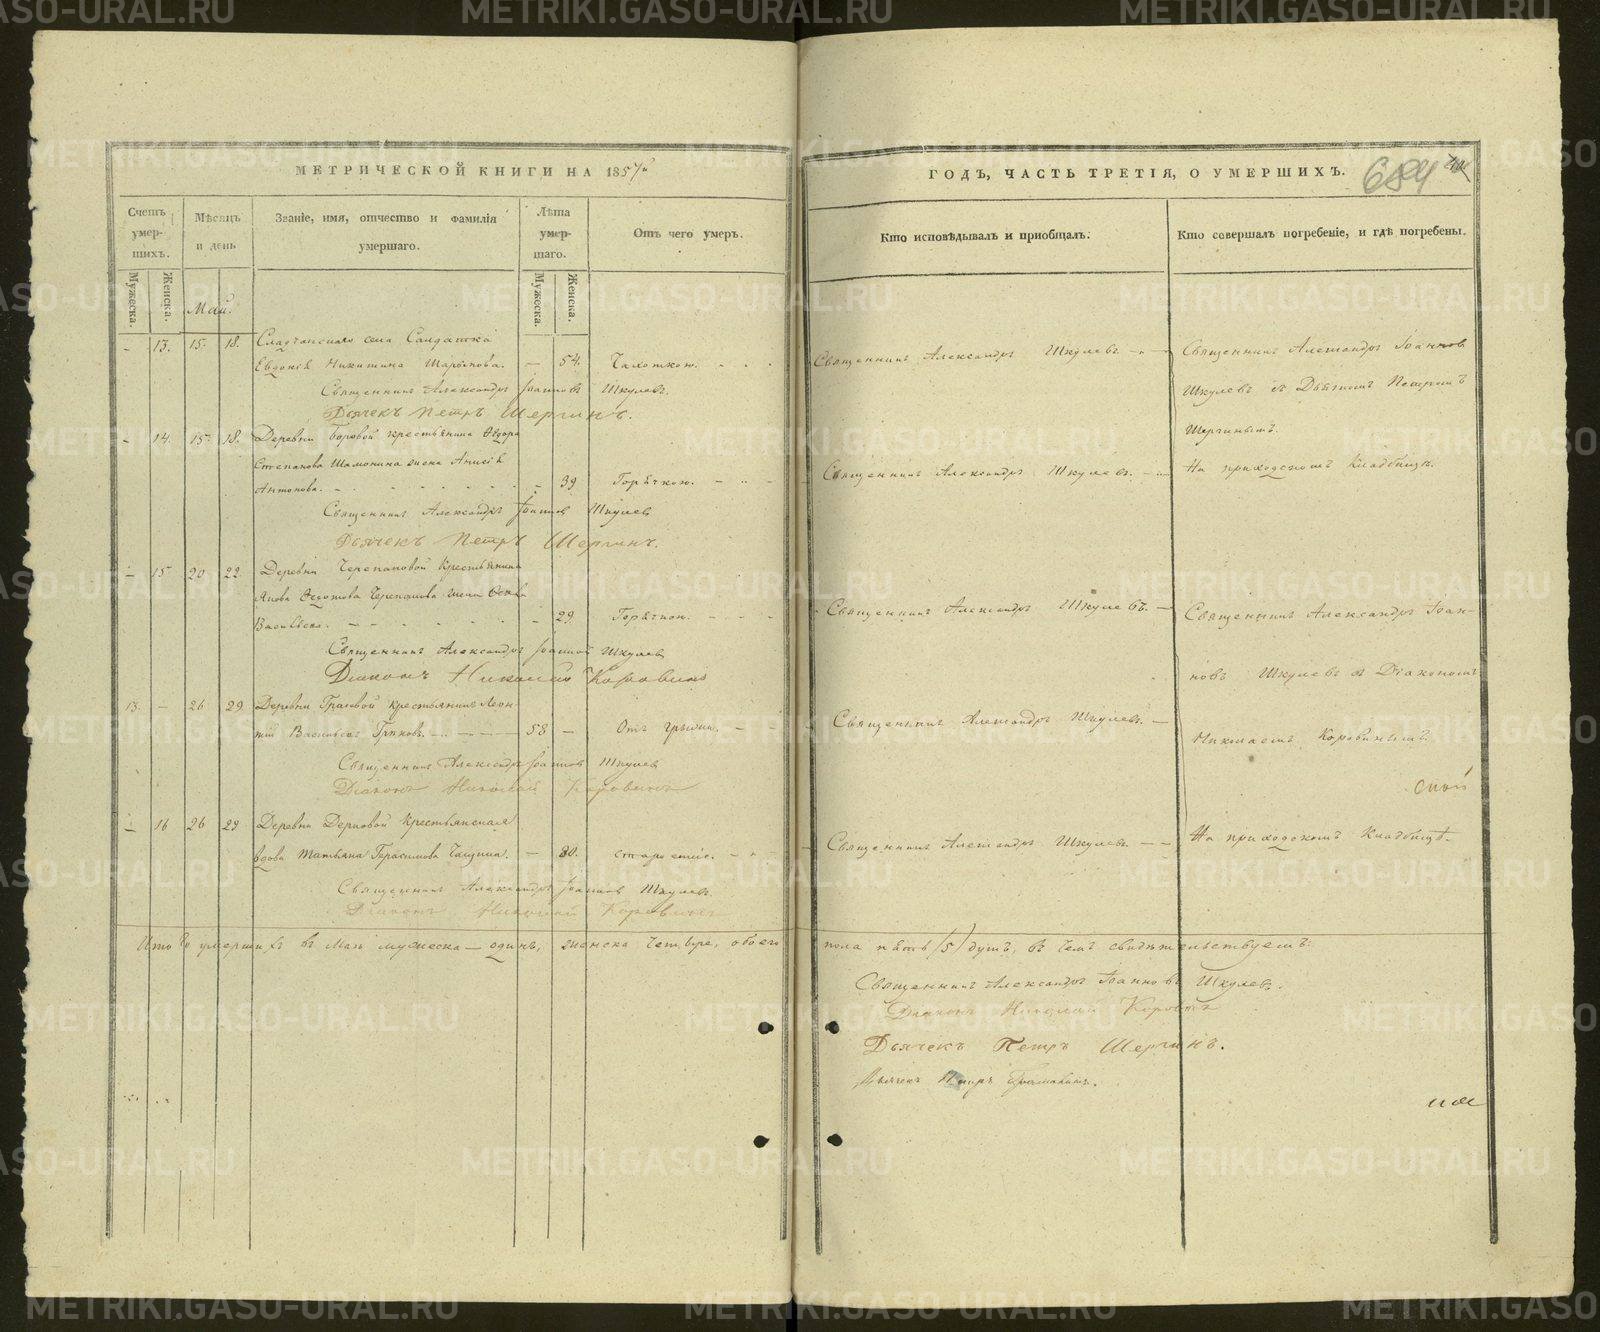 МЕТРИЧЕСКОЙ КНИГИ НА 1857й
ГОДЪ, ЧАСТЬ ТРЕТІЯ, О УМЕРШИХЪ.
684
Счетъ умер-шихъ.
Мужеска.
Женска.
Мѣсяцъ и день
Званіе, имя, отчество и фамилія умершаго.
Лѣта умер-шаго.
Мужеска.
Женска.
Отъ чего умеръ.
Кто исповѣдывалъ и пріобщалъ.
Кто совершалъ погребеніе, и гдѣ погребены.
Май.
– 13. 15. 18. села Солдатка
Евдокія Никитина – 54. Чахоткою.
Священникъ Александръ Шкулевъ
Священникъ Александръ Іоанновъ
Священникъ Александръ Іоанновъ Шкулевъ.
Шкулевъ съ Дьячкомъ Петромъ
Дьячекъ Петръ Шергинъ.
Шергинымъ.
– 14. 15. 18. Деревни Боровой крестьянина Ѳедора
Степанова Шамонина жена Анисія
Антонова. – 39 Горячкою.
Священникъ Александръ Шкулевъ.
На приходскомъ Кладбищѣ.
Священникъ Александръ Іоанновъ Шкулевъ
Дьячекъ Петръ Шергинъ.
– 15 20 22. Деревни Черепановой Крестьянина
Черепанова жена
Васильева. – 29 Горячкою.
Священникъ Александръ Шкулевъ.
Священникъ Александръ Іоан-
новъ Шкулевъ съ Діакономъ
Николаемъ Коровинымъ.
Священникъ Александръ Іоанновъ Шкулевъ
Діаконъ Николай Коровинъ
13. – 26 29 Деревни крестьянинъ Леон-
тій Васильевъ 58 – Отъ грыжи.
Священникъ Александръ Шкулевъ.
Священникъ Александръ Іоанновъ Шкулевъ
Діаконъ Николай Коровинъ
– 16 26 29 Деревни Крестьянская
вдова Татьяна Герасимова – 80. старостію.
Священникъ Александръ Шкулевъ.
На приходскомъ Кладбищѣ.
Священникъ Александръ Іоанновъ Шкулевъ
Діаконъ Николай Коровинъ
Итого умершихъ въ Маѣ мужеска – одинъ, женска четыре, обоего пола пять /5/ душъ, въ чемъ свидѣтельствуемъ:
Священникъ Александръ Іоанновъ Шкулевъ.
Діаконъ Николай Коровинъ
Дьячекъ Петръ Шергинъ.
METRIKI.GASO-URAL.RU